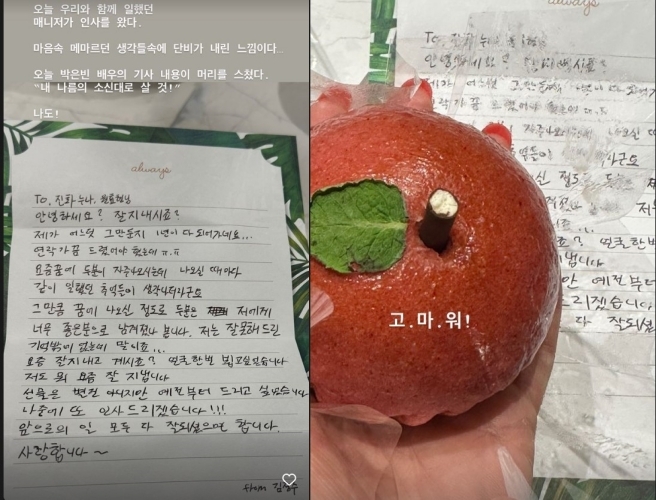 오늘 우리와 함께 일했던
매니저가 인사를 왔다.
마음속 메마르던 생각들속에 단비가 내린 느낌이다..
오늘 박은빈 배우의 기사 내용이 머리를 스쳤다.
"내 나름의 소신대로 살 것!"
나도!
always
To. 진화누나,
안녕하세요? 잘지내시죠?
제가 어느덧 그만둔지 1년이 다 되어가네요...
연락가끔 드렸어야 했는데 ㅠ.ㅠ
요즘꿈에 두분이 자주나오시는데 나오실 때마다
같이 일했던 추억들이 생각나더라구요
그만큼 꿈에 나오신 정도로 두분은 저에게
너무 좋은분으로 남겨졌나 봅니다. 저는 잘못해드린
기억밖에 없는데 말이죠...
요즘 잘지내고 계시죠? 한번 뵙고싶었습니다
저도 뭐 요즘 잘 지냅니다
선물은 변전 아니지만 예전부터 드리고 싶었습니다
나중에 또 인사드리겠습니다!!!
앞으로의 일 모두 다 잘되셨으면 합니다.
사랑합니다~
from
always
고.마.워!